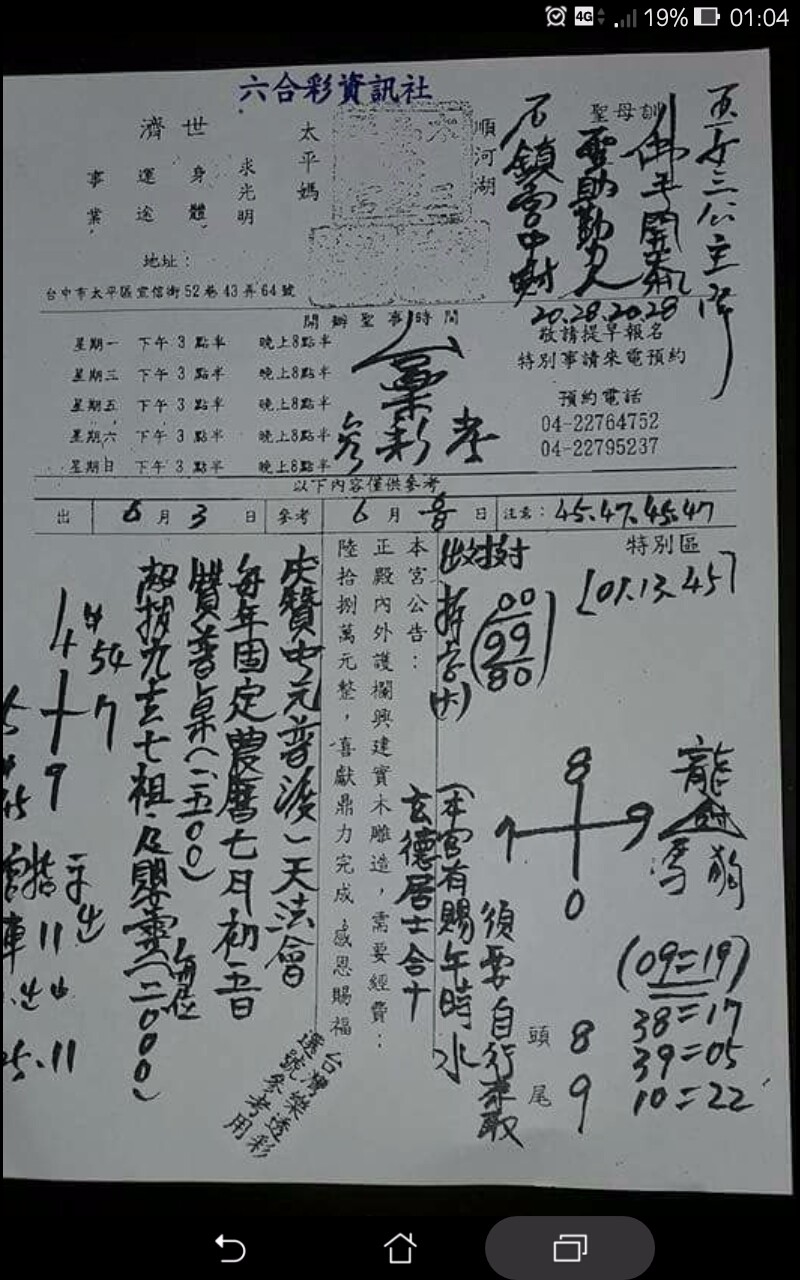 4G 19% 01:04
六合彩資訊社
順河湖
太平媽
濟世
求光明
身體
運途
事業
地址：
台中市太平區宜信街52巷43弄64號
聖母訓
佛手開
聖助勤人
石鎮宮中財
三公主降
20.28.20.28
開辦聖事時間
星期一 下午3點半 晚上8點半
星期三 下午3點半 晚上8點半
星期五 下午3點半 晚上8點半
星期六 下午3點半 晚上8點半
星期日 下午3點半 晚上8點半
敬請提早報名
特別事請來電預約
預約電話
04-22764752
04-22795237
以下內容僅供參考
出 6月3日 參考 6月 日 注意：45.47.45.47
特別區
[01.13.45]
00
99
80
本宮公告：
正殿內外護欄興建實木雕造，需要經費：
陸拾捌萬元整，喜獻鼎力完成，感恩賜福
玄德居士合十
(本宮有賜午時水
須要自行
慶贊中元普渡一天法會
每年固定農曆七月初五日
贊普桌(二五00)
超拔九玄七祖及嬰靈(二000)
每位
台灣樂透彩
選號參考用
龍
馬 狗
8
7 9
0
頭 8
尾 9
(09=19)
38=17
39=05
10=22
54
7
9
11
25.11